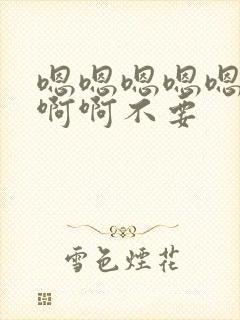 嗯嗯嗯嗯嗯
啊啊不要
雪色煙花